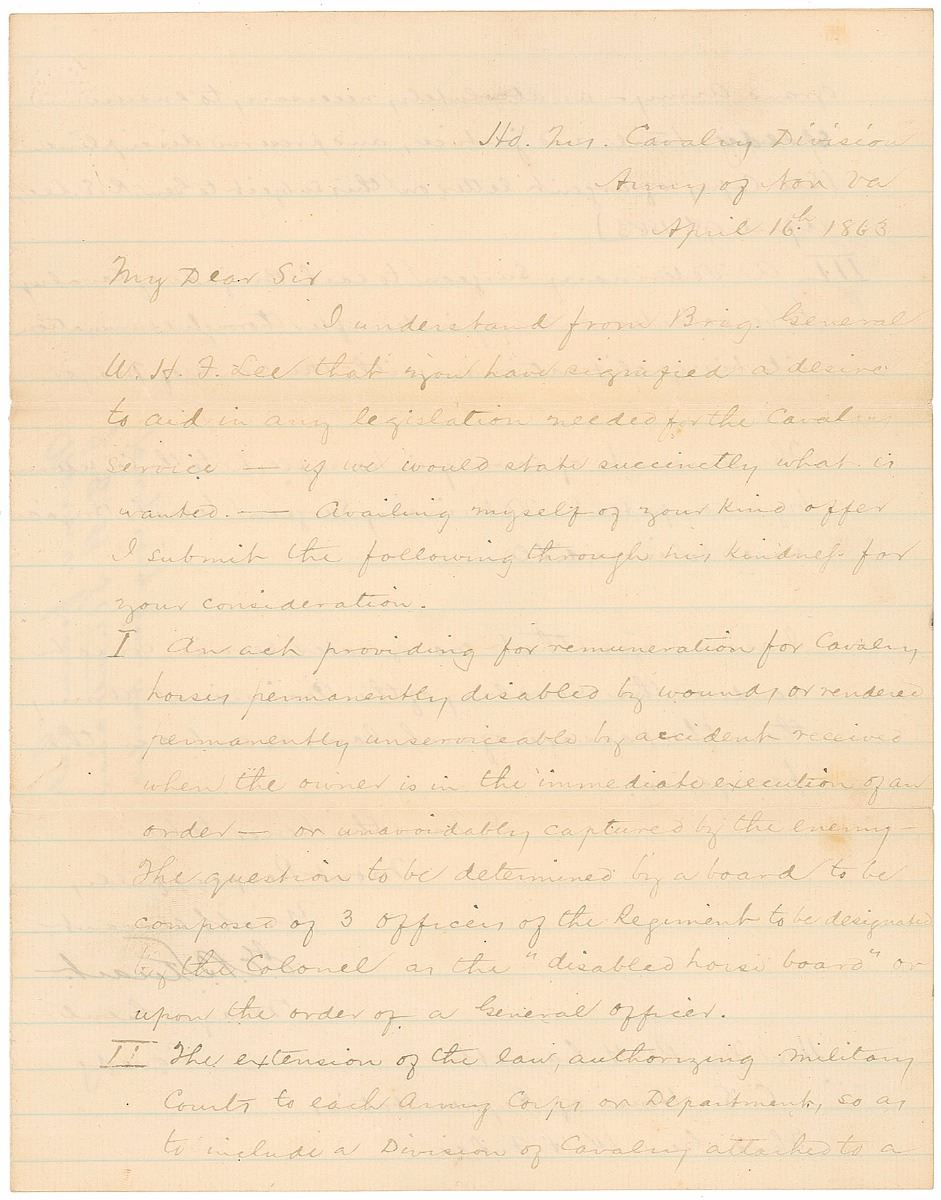 Hd. Qrs. Cavalry Division
Army of Nor Va
April 16th 1863
My Dear Sir
I understand from Brig. General
W. H. F. Lee that you have signified a desire
to aid in any legislation needed for the Cavalry
service — if we would state succinctly what is
wanted. — Availing myself of your kind offer
I submit the following through his kindness for
your consideration.
I An act providing for remuneration for Cavalry
horses permanently disabled by wounds, or rendered
permanently unserviceable by accident received
when the owner is in the immediate execution of an
order — or unavoidably captured by the enemy —
The question to be determined by a board to be
composed of 3 officers of the Regiment to be designated
by the Colonel as the "disabled horse board" or
upon the order of a General officer.
II The extension of the law, authorizing military
Courts to each Army Corps or Department, so as
to include a Division of Cavalry attached to a